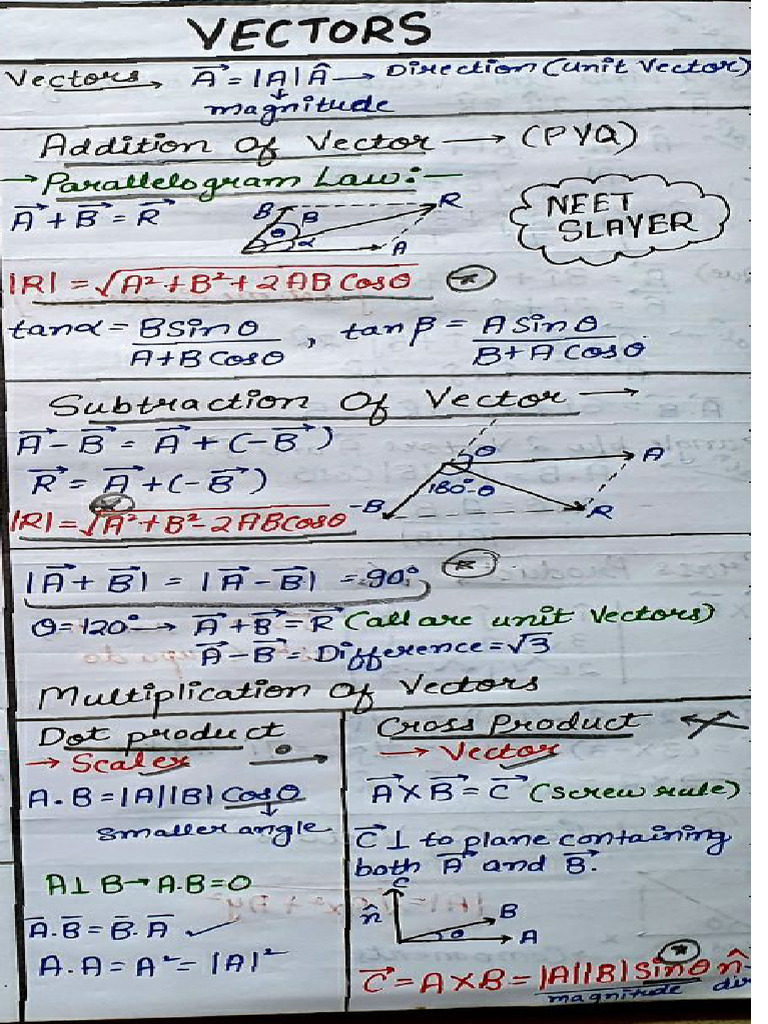 VECTORS
Vectors, A⃗ = |A| Â → Direction (unit Vector)
↓
magnitude
Addition Of Vector → (PYQ)
→ Parallelogram Law:-
A⃗ + B⃗ = R⃗
B β R
θ α A
NEET
SLAYER
|R| = √A² + B² + 2AB Cosθ
tanα = B Sinθ / A + B Cosθ , tanβ = A Sinθ / B + A Cosθ
Subtraction Of Vector →
A⃗ - B⃗ = A⃗ + (-B⃗)
R⃗ = A⃗ + (-B⃗)
|R| = √A² + B² - 2AB Cosθ
θ A
180°-θ
-B R
|A⃗ + B⃗| = |A⃗ - B⃗| = 90°
θ = 120° → A⃗ + B⃗ = R⃗ (all are unit Vectors)
A⃗ - B⃗ = Difference = √3
Multiplication Of Vectors
Dot product
→ Scaler
A . B = |A||B| Cosθ
↓
smaller angle
A ⊥ B → A.B = 0
A̅ . B̅ = B̅ . A̅ ✓
A . A = A² = |A|²
Cross Product
→ Vector
A⃗ × B⃗ = C⃗ (Screw rule)
C⃗ ⊥ to plane containing
both A⃗ and B⃗.
C
n̂ B
θ A
C⃗ = A × B = |A||B| Sinθ n̂
magnitude dir